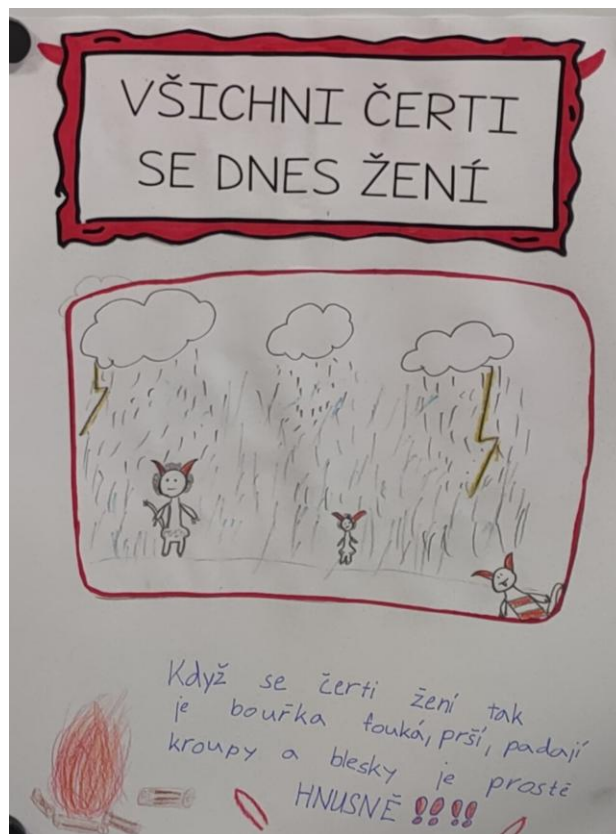 VŠICHNI ČERTI
SE DNES ŽENÍ
Když se čerti žení tak
je bouřka fouká, prší, padají
kroupy a blesky je prostě
HNUSNĚ !!!!